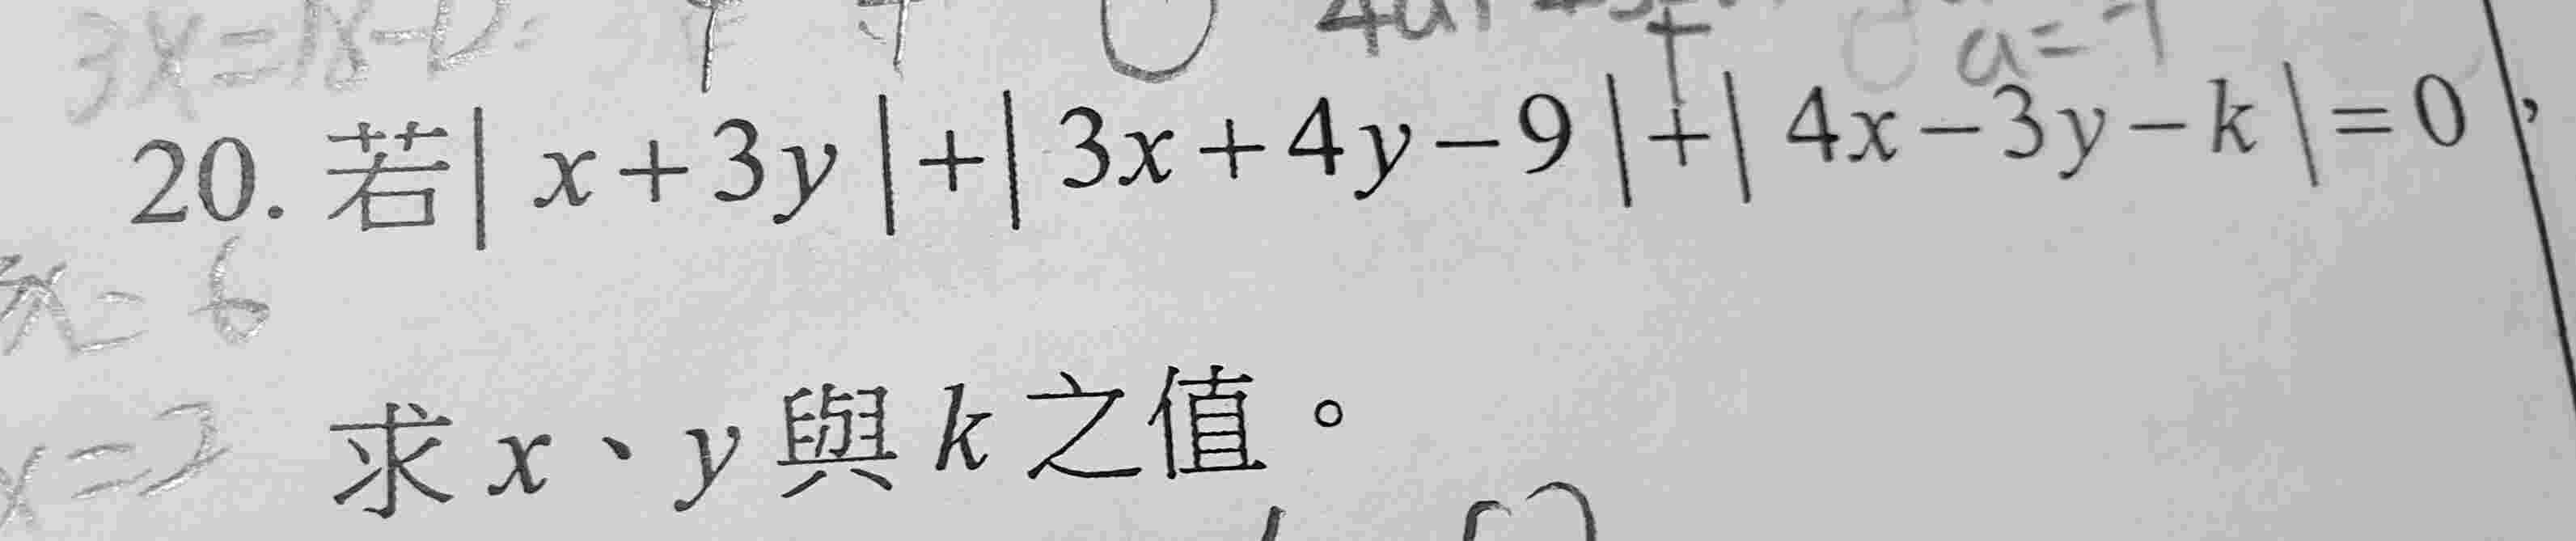 3x=18-12
a=-1
20. 若| x+3y |+| 3x+4y-9 |+| 4x-3y-k |=0,
x=6
求 x、y 與 k 之值。
x=2